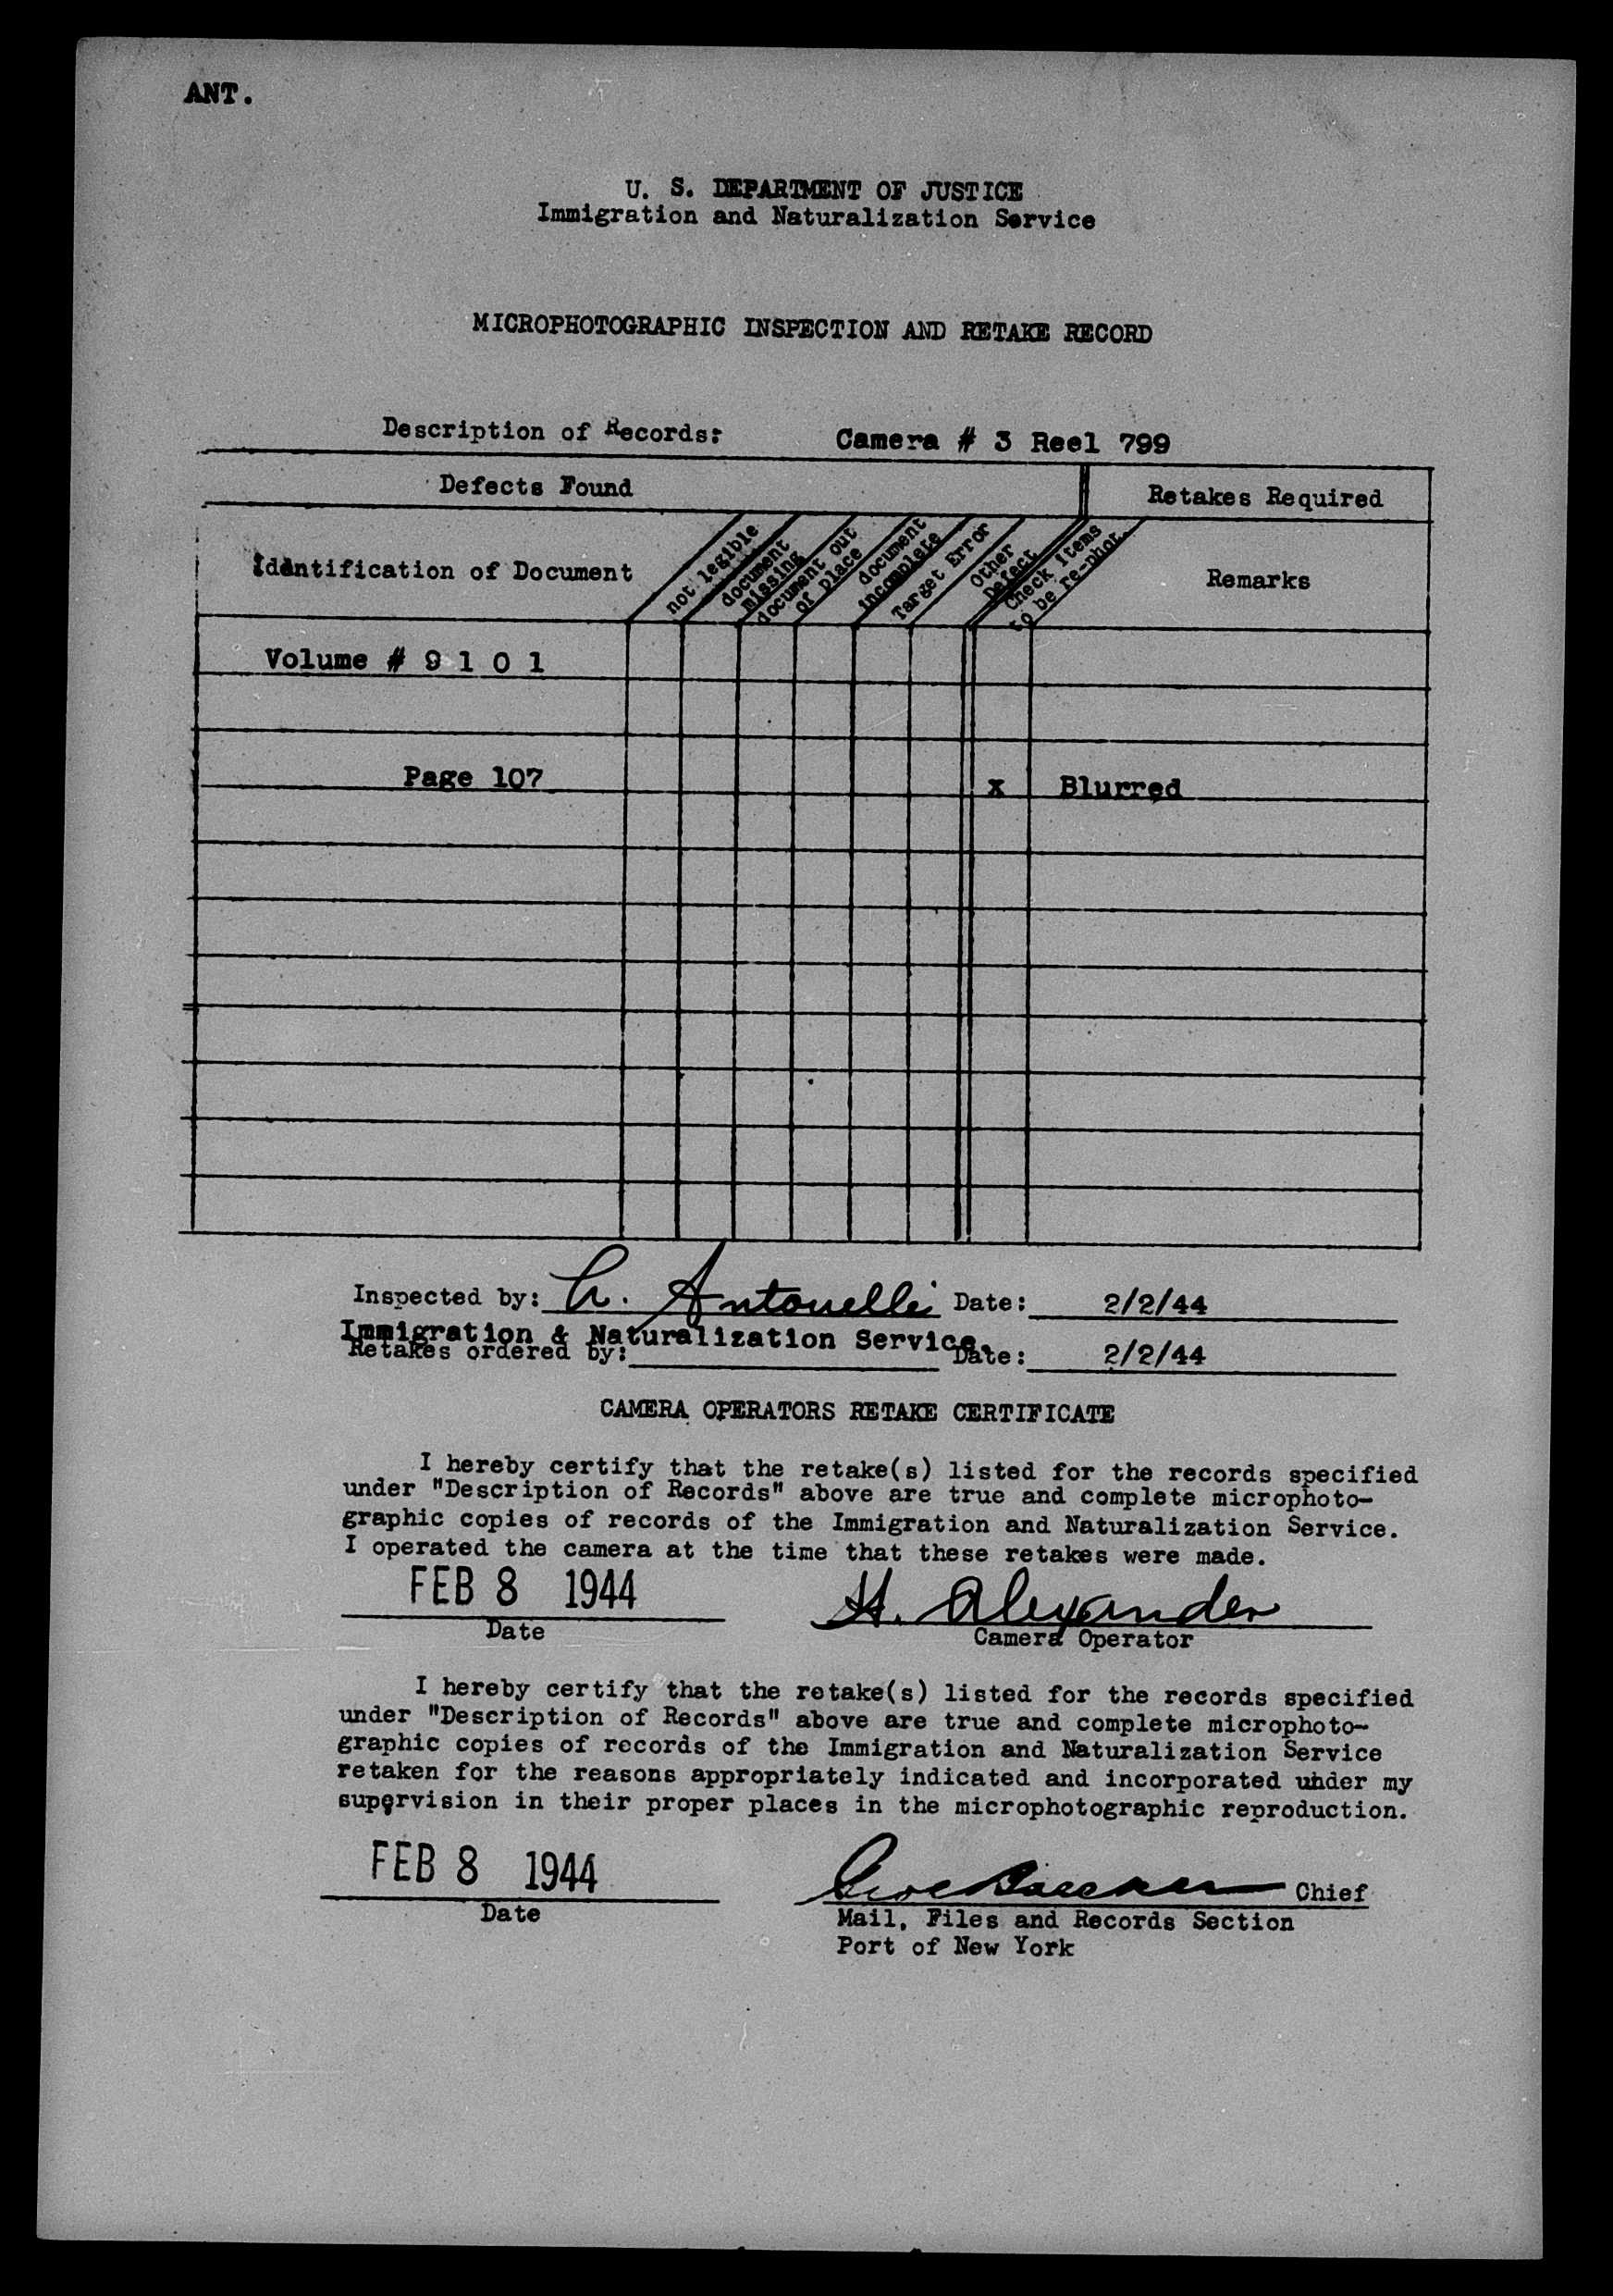 ANT.
U. S. DEPARTMENT OF JUSTICE
Immigration and Naturalization Service
MICROPHOTOGRAPHIC INSPECTION AND RETAKE RECORD
Description of Records: Camera # 3 Reel 799
Defects Found
Retakes Required
Identification of Document
not legible
document
missing
document out
of place
document
incomplete
Target Error
Other
Defect
Check items
to be re-phot.
Remarks
Volume # 9 1 0 1
Page 107 x Blurred
Inspected by: A. Antonelli Date: 2/2/44
Immigration & Naturalization Service.
Retakes ordered by: Date: 2/2/44
CAMERA OPERATORS RETAKE CERTIFICATE
I hereby certify that the retake(s) listed for the records specified
under "Description of Records" above are true and complete microphoto-
graphic copies of records of the Immigration and Naturalization Service.
I operated the camera at the time that these retakes were made.
FEB 8 1944 H. Alexander
Date Camera Operator
I hereby certify that the retake(s) listed for the records specified
under "Description of Records" above are true and complete microphoto-
graphic copies of records of the Immigration and Naturalization Service
retaken for the reasons appropriately indicated and incorporated under my
supervision in their proper places in the microphotographic reproduction.
FEB 8 1944 Chief
Date Mail, Files and Records Section
Port of New York